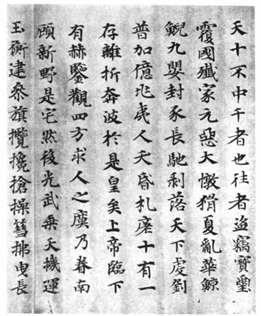 天十不中千者也往者盜竊寶璽
覆國殲家元惡大憝猾夏亂華鯨
鯢九嬰封豕長馳剝落天下虔劉
普加億兆夷人天昏札十有一
存離折奔波於是皇矣上帝臨下
有赫鑒觀四方求人之瘼乃眷南
顧新野是宅然後光武乘天機運
玉衡建參旗攬欃搶操彗拂曳長